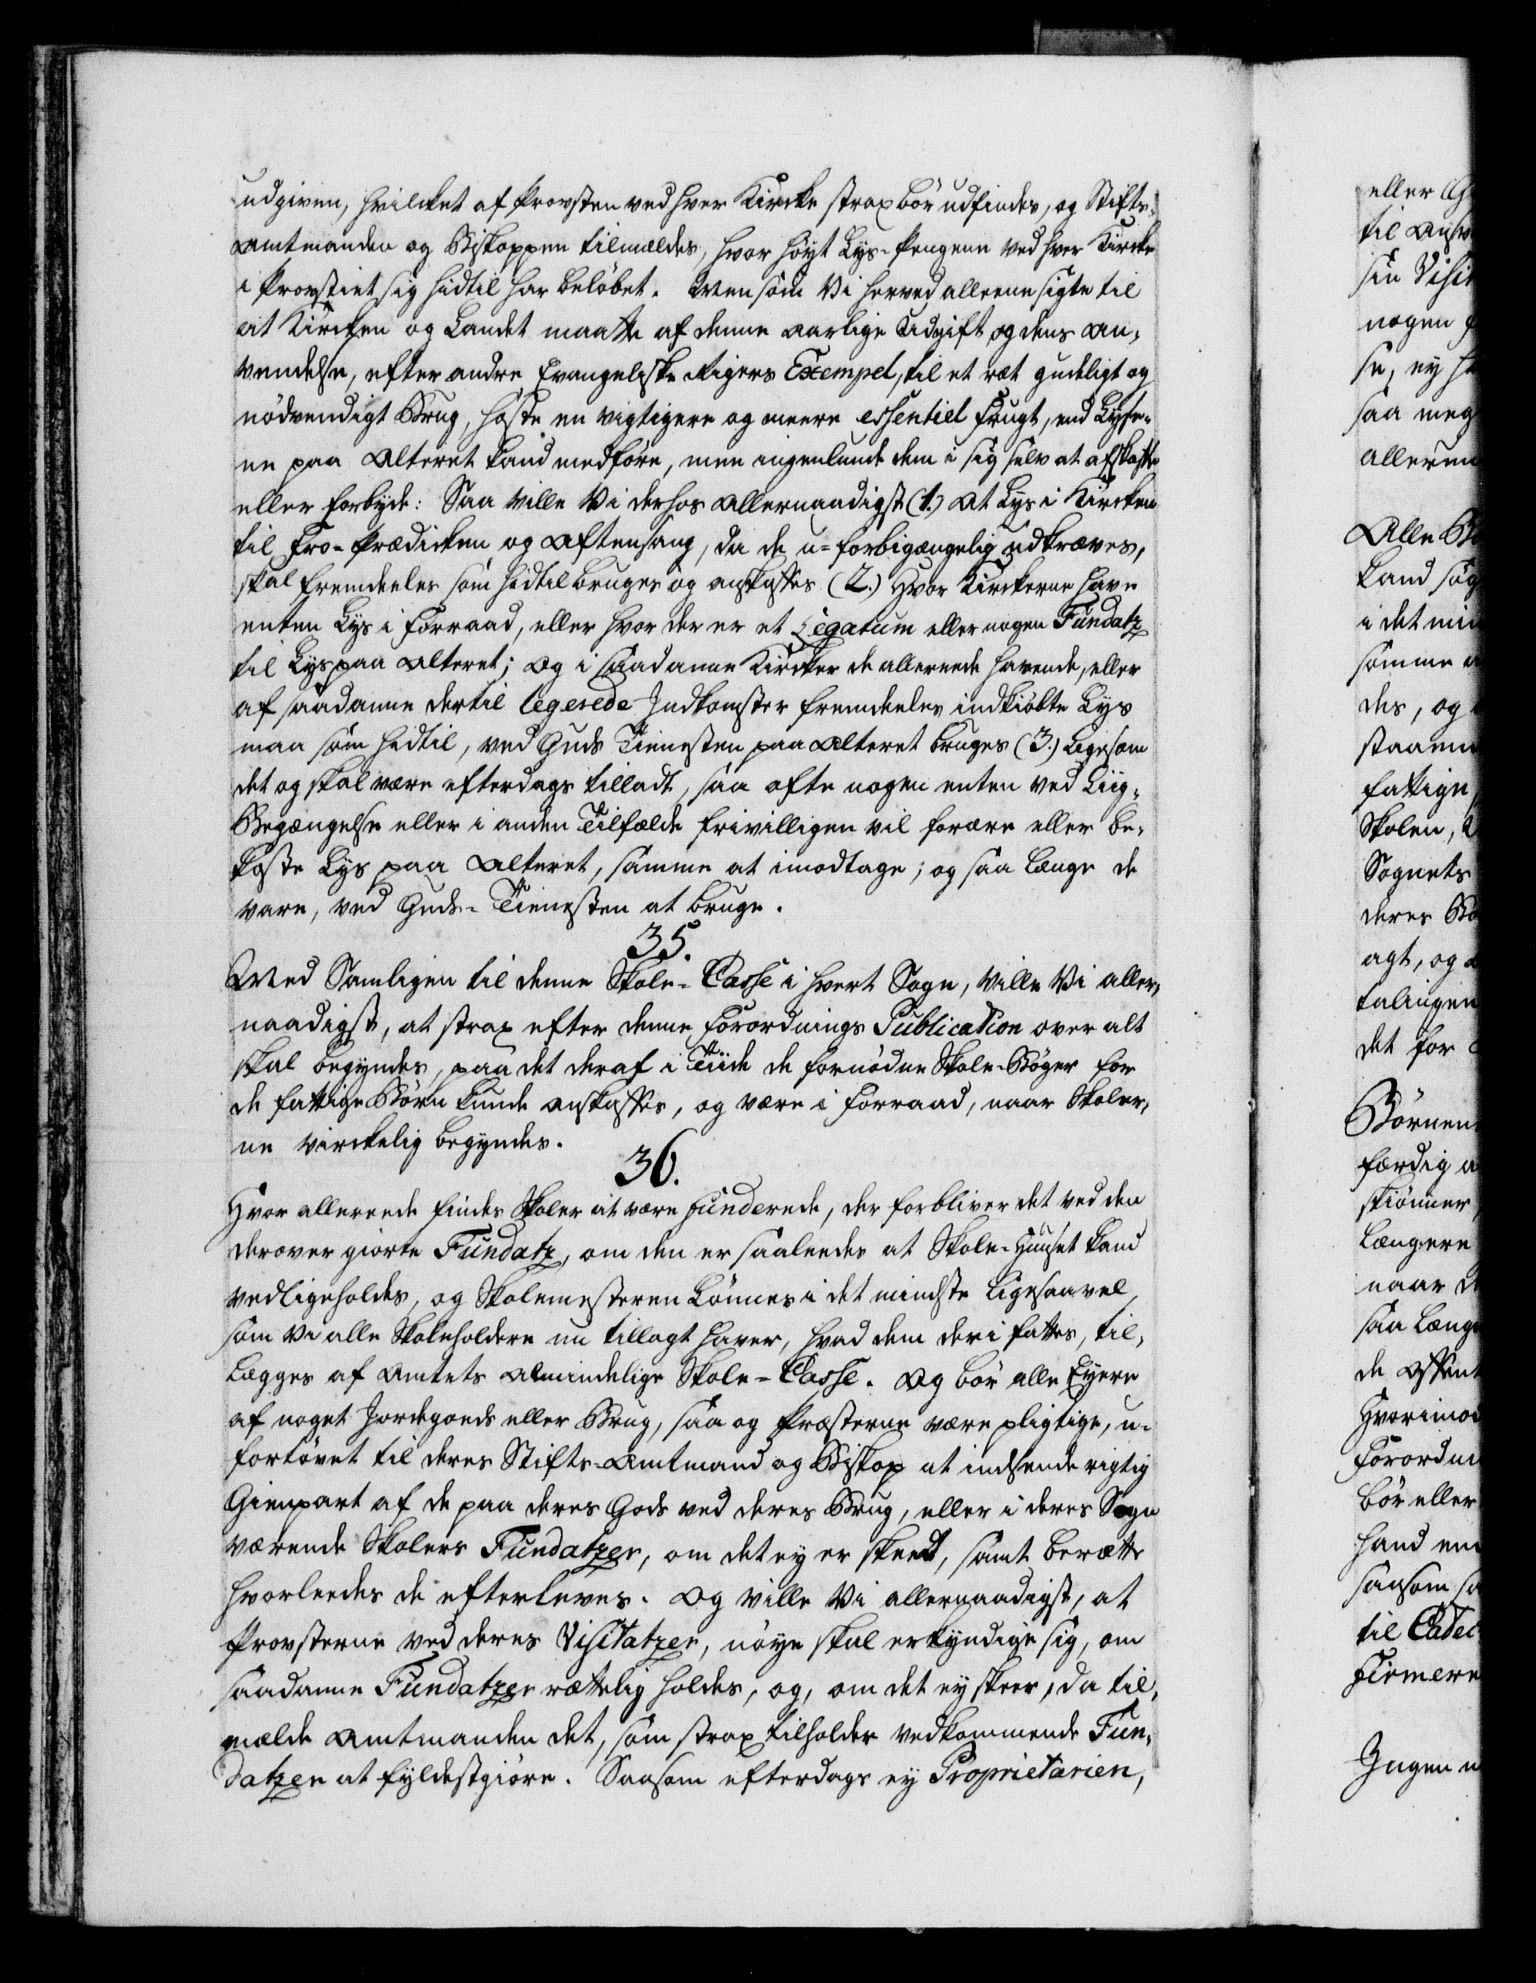 udgiven, hvilcket af Provsten ved hver Kircke strax bör udfindes, og Stifts-
Amtmanden og Biskoppen tilmældes, hvor höyt Lys-Pengene ved hver Kircke
i Provstiet sig hidtil har belöbet. Men som Vi herved alleene sigte til
at Kircken og Landet maatte af denne aarlige Udgift og dens An-
vendelse, efter andre Evangeliske Rigers Exempel, til et ræt gudeligt og
nödvendigt Brug, höste en vigtigere og meere essentiel Frugt, end Lyse-
ne paa Alteret kand medföre, men ingenlunde dem i sig selv at afskaffe
eller forbyde: Saa ville Vi derhos allernaadigst (1.) At Lys i Kircken
til Fro-Prædicken og Aftensang, da de u-forbigængelig udkræves,
skal fremdeeles som hidtil bruges og anskaffes (2.) Hvor Kirckerne have
enten Lys i Forraad, eller hvor der er et Legatum eller nogen Fundatz
til Lys paa Alteret; Og i saadanne Kircker de allereede havende, eller
af saadanne dertil legerede Indkomster fremdeeles indkiöbte Lys
maa som hidtil, ved Guds Tienesten paa Alteret bruges (3.) Ligesom
det og skal være efterdags tilladt, saa ofte nogen enten ved Liig-
Begængelse eller i anden Tilfælde frivilligen vil forære eller be-
koste Lys paa Alteret, samme at imodtage; og saa længe de
vare, ved Guds-Tienesten at bruge.
35.
Med Samlingen til denne Skole-Casse i hvert Sogn, ville Vi aller-
naadigst, at strax efter denne Forordnings Publication over alt
skal begyndes, paa det deraf i Tiide de fornödne Skole-Böger for
de fattige Börn kunde anskaffes, og være i Forraad, naar Skoler-
ne virckelig begyndes.
36.
Hvor allereede findes Skoler at være funderede, der forbliver det ved den
derover giorte Fundatz, om den er saaleedes at Skole-Huuset kand
vedligeholdes, og Skolemesteren lönnes i det mindste ligesaavel,
som Vi alle Skoleholdere nu tillagt haver, hvad dem deri fattes, til-
lægges af Amtets almindelige Skole-Casse. Og bör alle Eyere
af noget Jordegods eller Brug, saa og Præsterne være pligtige, u-
fortövet til deres Stifts-Amtmand og Biskop at indsende rigtig
Gienpart af de paa deres Gods ved deres Brug, eller i deres Sogn
værende Skolers Fundatzer, om det ey er skeedt, samt berætte
hvorleedes de efterleves. Og ville Vi allernaadigst, at
Provsterne ved deres Visitatzer, nöye skal erkyndige sig, om
saadanne Fundatzer rættelig holdes, og, om det ey skeer, da til-
mælde Amtmanden det, som strax tilholder vedkommende Fun-
datzen at fyldestgiöre. Saasom efterdags ey Proprietarien,
eller
til
sin
nogen
se, ey
saa meg
Alle
kand
i det
samme
des, og
fattige
Skolen,
Sognets
deres
agt, og
det for
Börnen
færdig
skiönner
længere
naar
saa læng
de
Hvorimod
Forordni
bör eller
hand
saasom
til Catec
Ingen